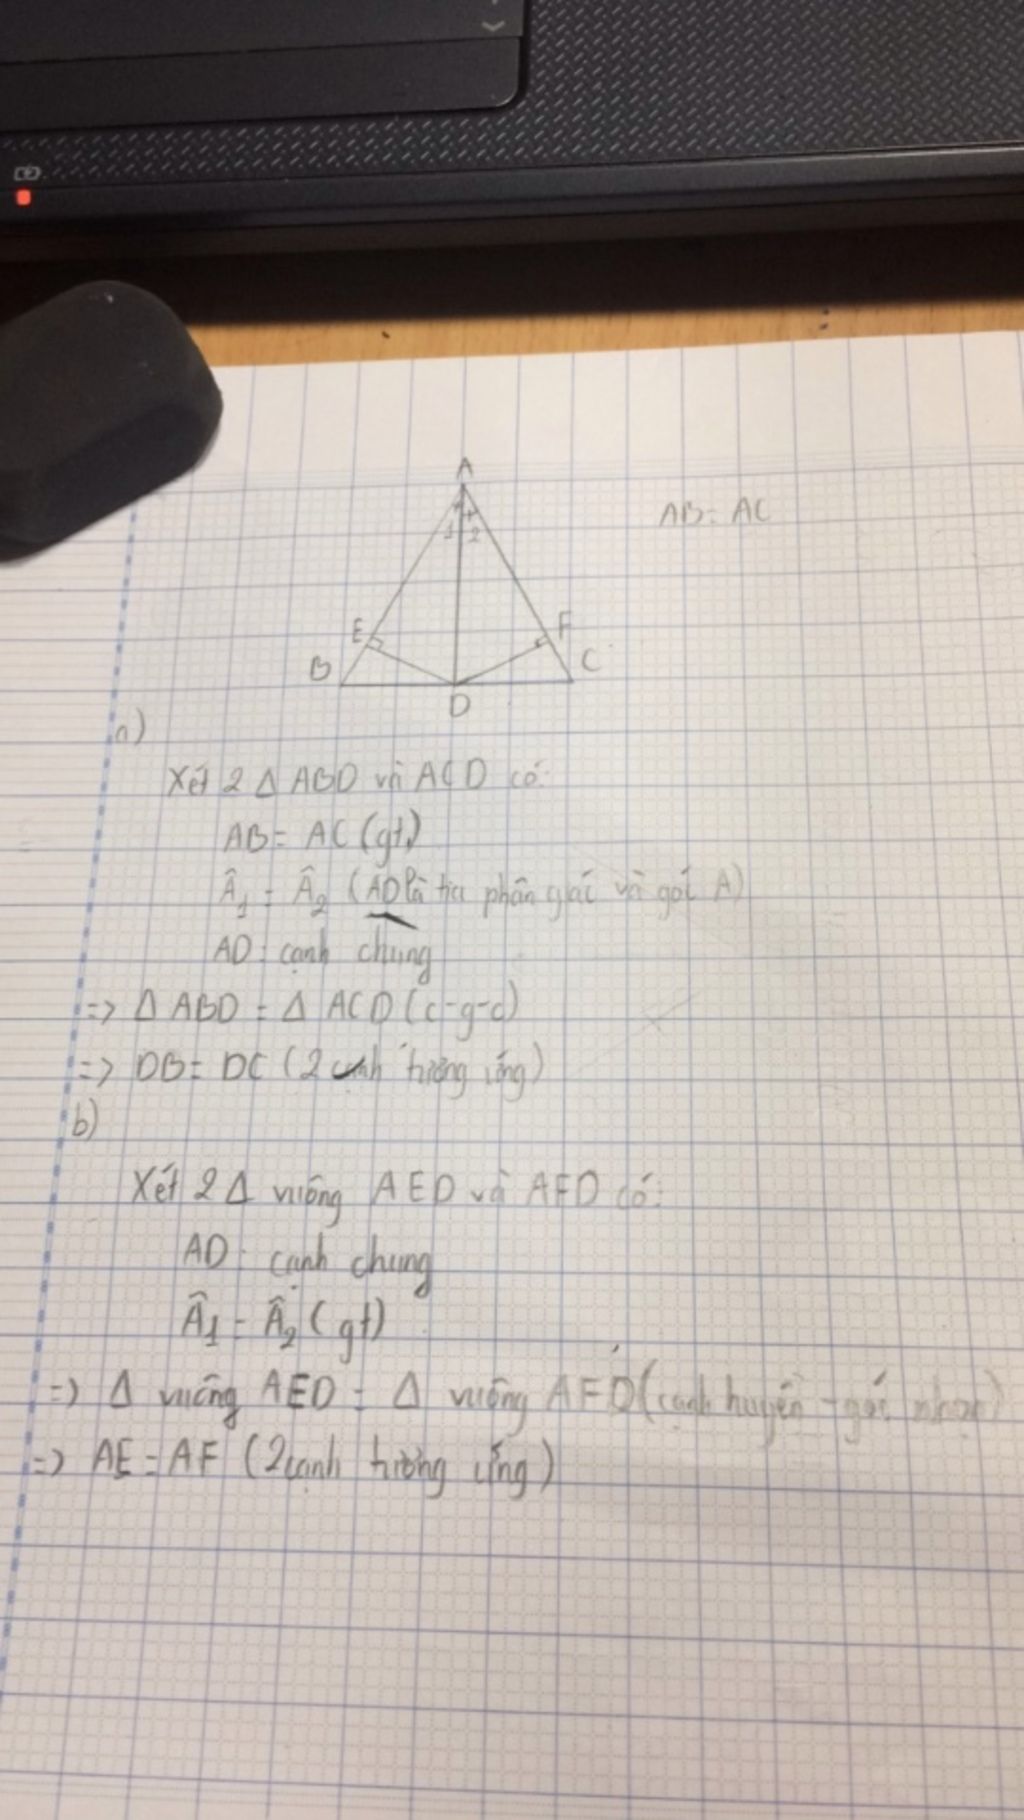 A
AB = AC
1 2
E F
B C
D
a)
Xét 2 Δ ABD và ACD có:
AB = AC (gt)
Â₁ = Â₂ (AD là tia phân giác và góc A)
AD: cạnh chung
=> Δ ABD = Δ ACD (c-g-c)
=> DB = DC (2 cạnh tương ứng)
b)
Xét 2 Δ vuông AED và AFD có:
AD: cạnh chung
Â₁ = Â₂ (gt)
=> Δ vuông AED = Δ vuông AFD (cạnh huyền - góc nhọn)
=> AE = AF (2 cạnh tương ứng)